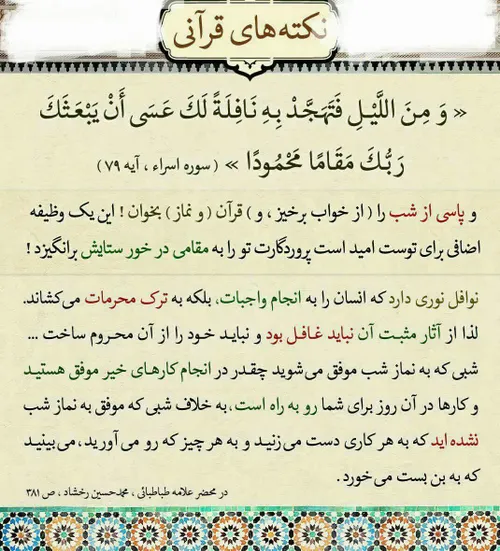 نکته‌های قرآنی
« وَ مِنَ اللَّيْلِ فَتَهَجَّدْ بِهِ نَافِلَةً لَكَ عَسَى أَنْ يَبْعَثَكَ
رَبُّكَ مَقَامًا مَحْمُودًا » ( سوره اسراء ، آیه ۷۹ )
و پاسی از شب را ( از خواب برخیز ، و ) قرآن ( و نماز ) بخوان ! این یک وظیفه
اضافی برای توست امید است پروردگارت تو را به مقامی در خور ستایش برانگیزد !
نوافل نوری دارد که انسان را به انجام واجبات، بلکه به ترک محرمات می‌کشاند.
لذا از آثار مثبت آن نباید غافل بود و نباید خود را از آن محروم ساخت ...
شبی که به نماز شب موفق می‌شوید چقدر در انجام کارهای خیر موفق هستید
و کارها در آن روز برای شما رو به راه است، به خلاف شبی که موفق به نماز شب
نشده‌اید که به هر کاری دست می‌زنید و به هر چیز که رو می‌آورید، می‌بینید
که به بن بست می‌خورد.
در محضر علامه طباطبائی ، محمدحسین رخشاد ، ص ۳۸۱